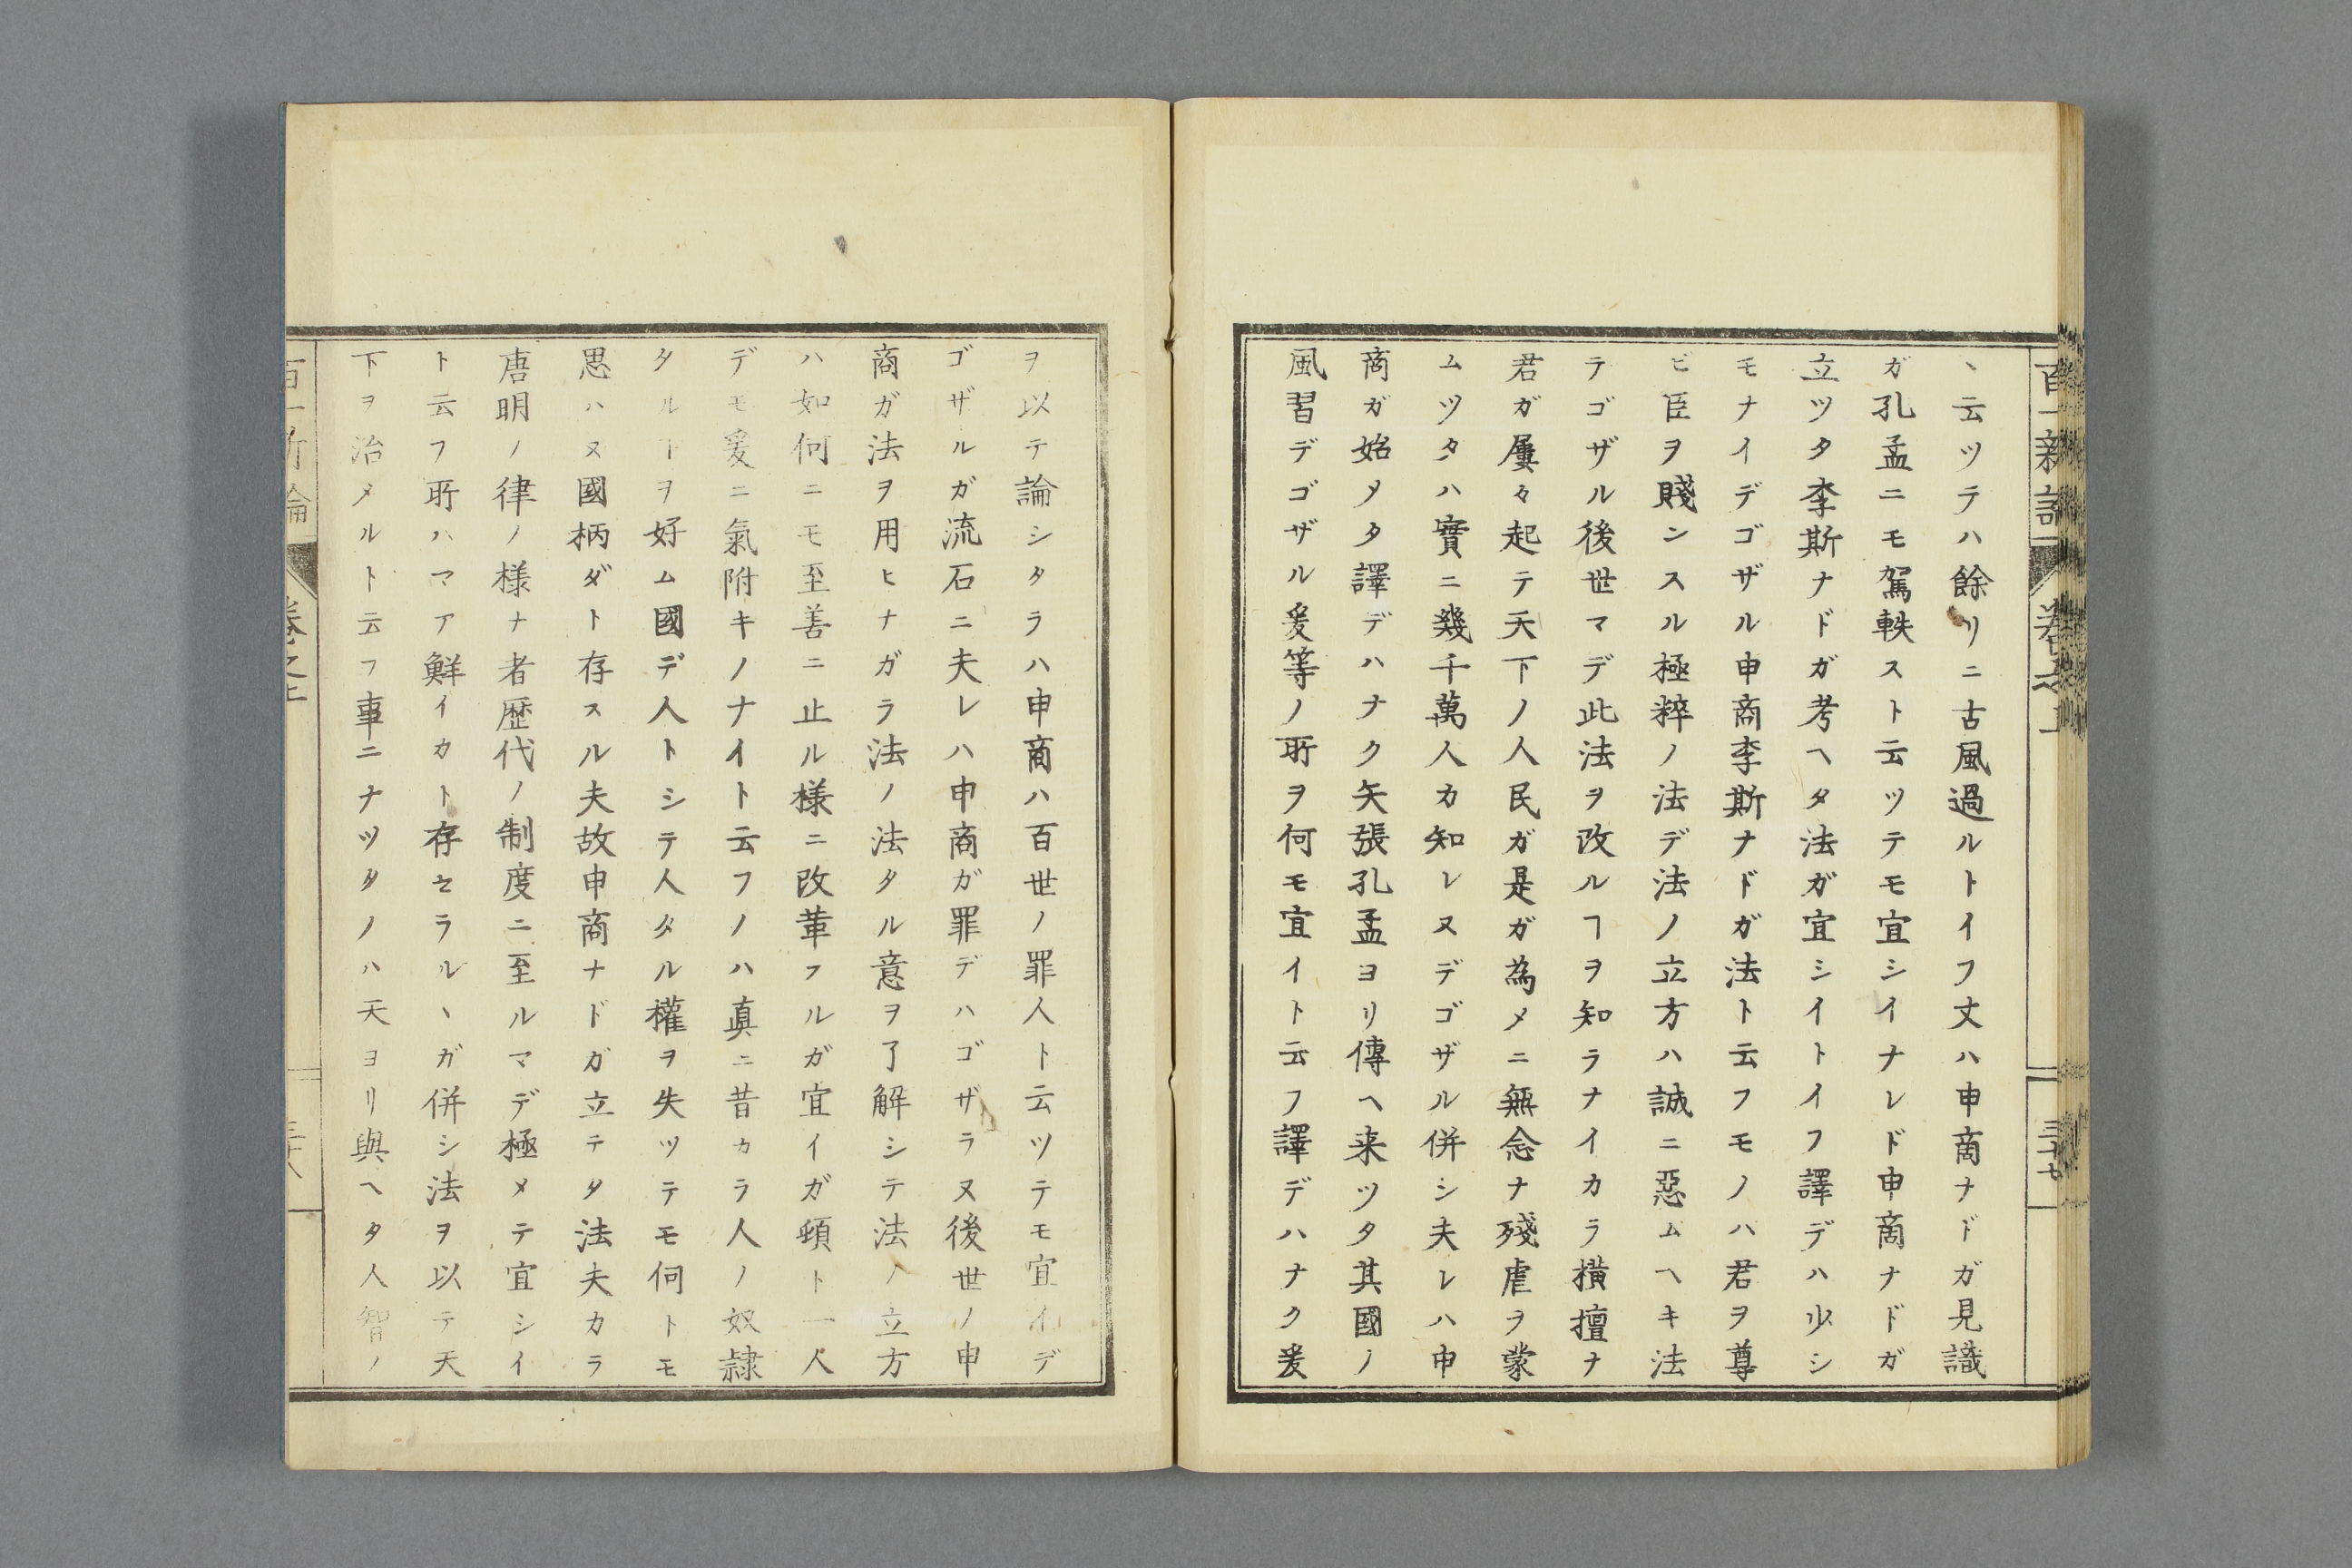 百一新論 卷之上 三十七
丶云ツテハ餘リニ古風過ルトイフ丈ハ申商ナドガ見識
ガ孔孟ニモ駕軼スト云ツテモ宜シイナレド申商ナドガ
立ツタ李斯ナドガ考ヘタ法ガ宜シイトイフ譯デハ少シ
モナイデゴザル申商李斯ナドガ法ト云フモノハ君ヲ尊
ビ臣ヲ賤ンスル極粹ノ法デ法ノ立方ハ誠ニ惡ムヘキ法
テゴザル後世マデ此法ヲ改ルヿヲ知ラナイカラ横擅ナ
君ガ屢々起テ天下ノ人民ガ是ガ為メニ無念ナ殘虐ヲ蒙
ムツタハ實ニ幾千萬人カ知レヌデゴザル併シ夫レハ申
商ガ始メタ譯デハナク矢張孔孟ヨリ傳ヘ来ツタ其國ノ
風習デゴザル爰等ノ所ヲ何モ宜イト云フ譯デハナク爰
ヲ以テ論シタラハ申商ハ百世ノ罪人ト云ツテモ宜イデ
ゴザルガ流石ニ夫レハ申商ガ罪デハゴザラヌ後世ノ申
商ガ法ヲ用ヒナガラ法ノ法タル意ヲ了解シテ法ノ立方
ハ如何ニモ至善ニ止ル様ニ改革フルガ宜イガ頓ト一人
デモ爰ニ氣附キノナイト云フノハ眞ニ昔カラ人ノ奴隷
タルヿヲ好ム國デ人トシテ人タル權ヲ失ツテモ何トモ
思ハヌ國柄ダト存スル夫故申商ナドガ立テタ法夫カラ
唐明ノ律ノ様ナ者歴代ノ制度ニ至ルマデ極メテ宜シイ
ト云フ所ハマア鮮イカト存セラル丶ガ併シ法ヲ以テ天
下ヲ治メルト云フ事ニナツタノハ天ヨリ與ヘタ人智ノ
百一新論 卷之上 三十八